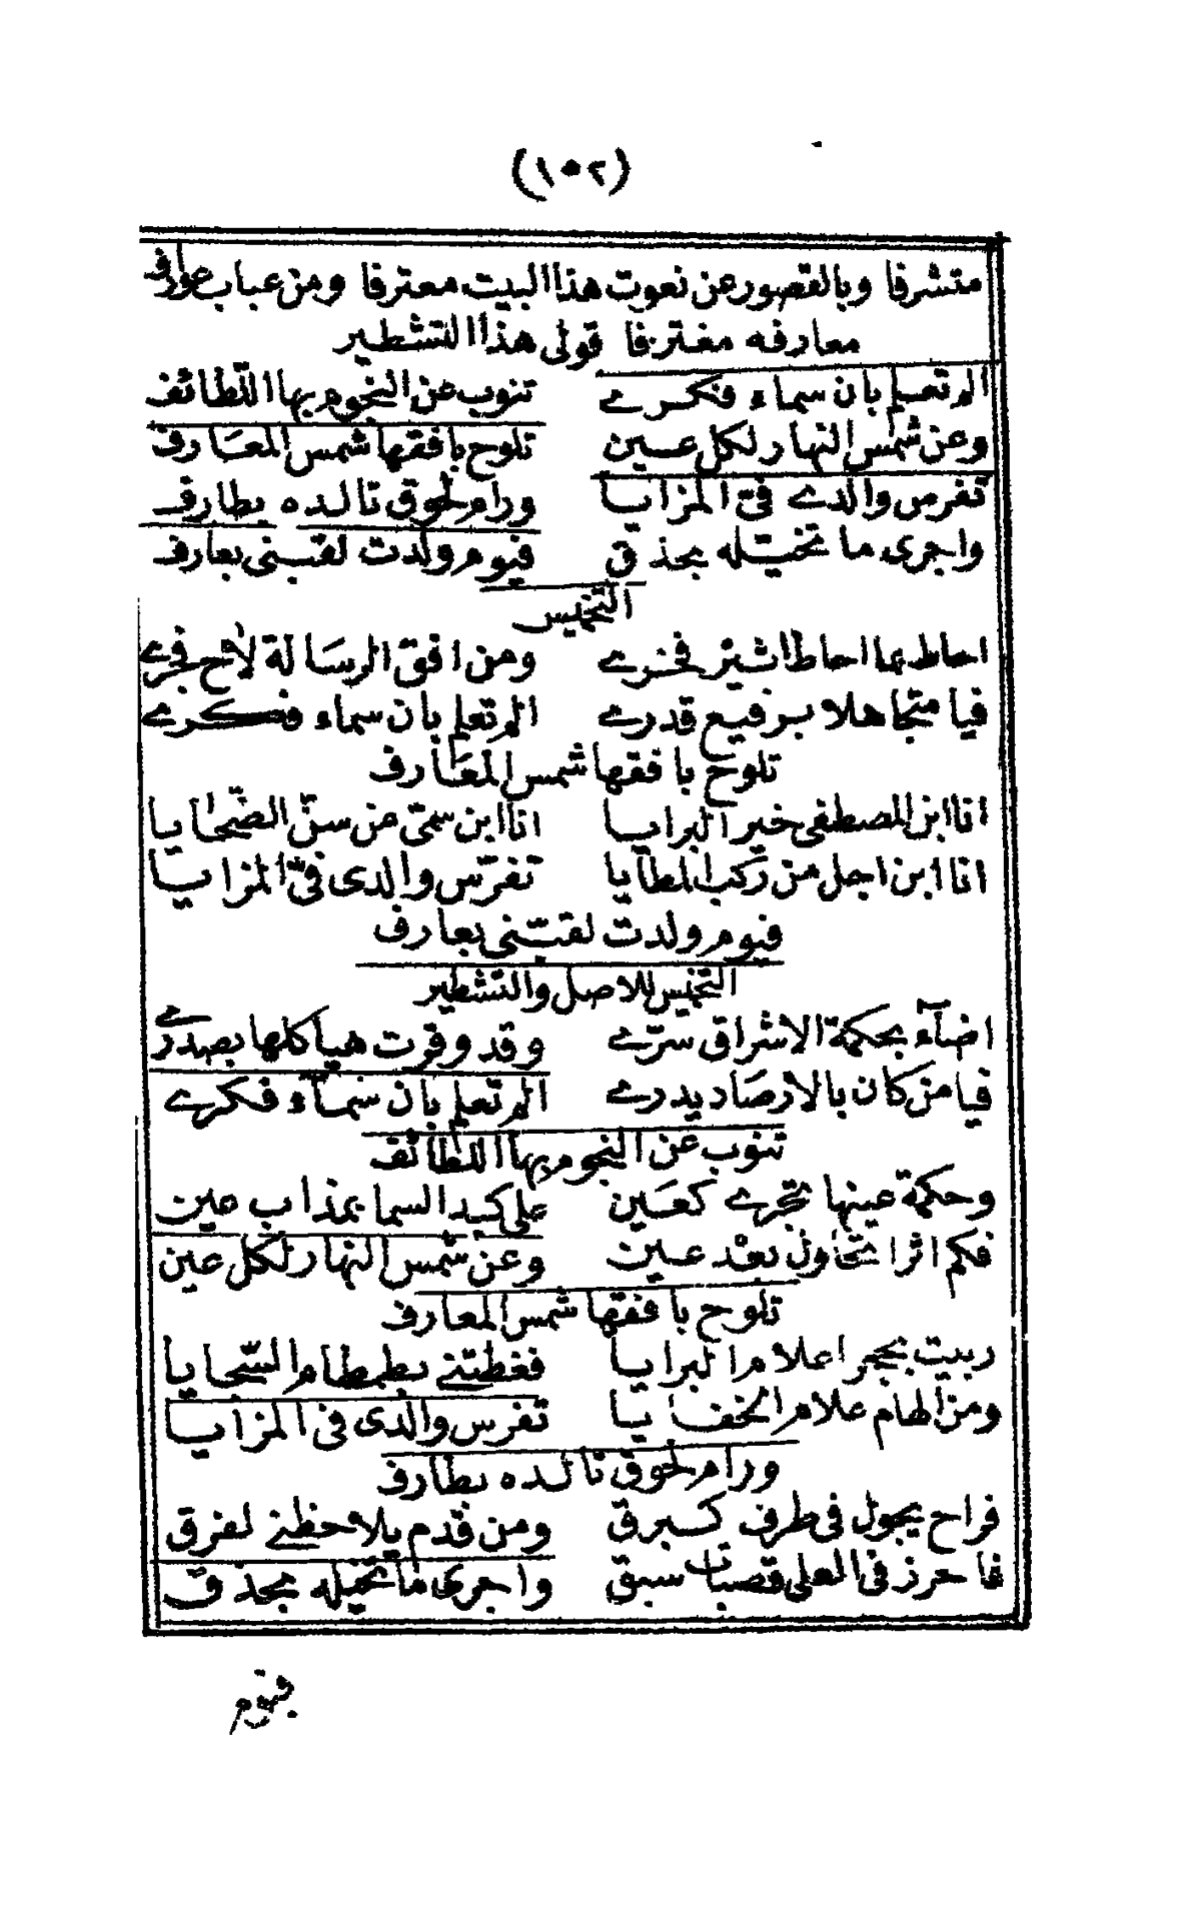 (١٥٢)
متشرفا وبالقصور عن نعوت هذا البيت معترفا ومن عباب عوارف
معارفه مغترفا قولى هذا التشطير
الم تعلم بان سماء فكرے تنوب عن النجوم بها اللطائف
وعن شمس النهار لكل عين تلوح بافقها شمس المعارف
تفرس والدے فىّ المزايا ورام لحوق تالده بطارف
واجرى ما تخيّله بحذق فيوم ولدت لقبنى بعارف
التخميس
احاط بما احاط اثير فخرے ومن افق الرسالة لاح فجرے
فيا متجاهلا برفيع قدرے الم تعلم بان سماء فكرے
تلوح بافقها شمس المعارف
انا ابن المصطفى خير البرايا انا ابن سمىّ من سنّ الضحايا
انا ابن اجل من ركب المطايا تفرّس والدى فىّ المزايا
فيوم ولدت لقبّنى بعارف
التخميس للاصل والتشطير
اضآء بحكمة الاشراق سرّے وقد وقرت هياكلها بصدرے
فيا من كان بالارصاد يدرے الم تعلم بان سمآء فكرے
تنوب عن النجوم بها اللطائف
وحكمة عينها تجرے كعين على كبد السما بمذاب عين
فكم اثرا تحاول بعد عين وعن شمس النهار لكل عين
تلوح بافقها شمس المعارف
ربيت بحجر اعلام البرايا فغطتنے بطمطام السجايا
ومن الهام علام الخفايا تفرس والدى فى المزايا
ورام لحوق تالده بطارف
فراح يجول فى طرف كبرق ومن قدم يلاحظنے لفرق
فاحرز فى المعلى قصبات سبق واجرى ما تخيله بحذق
فيوم